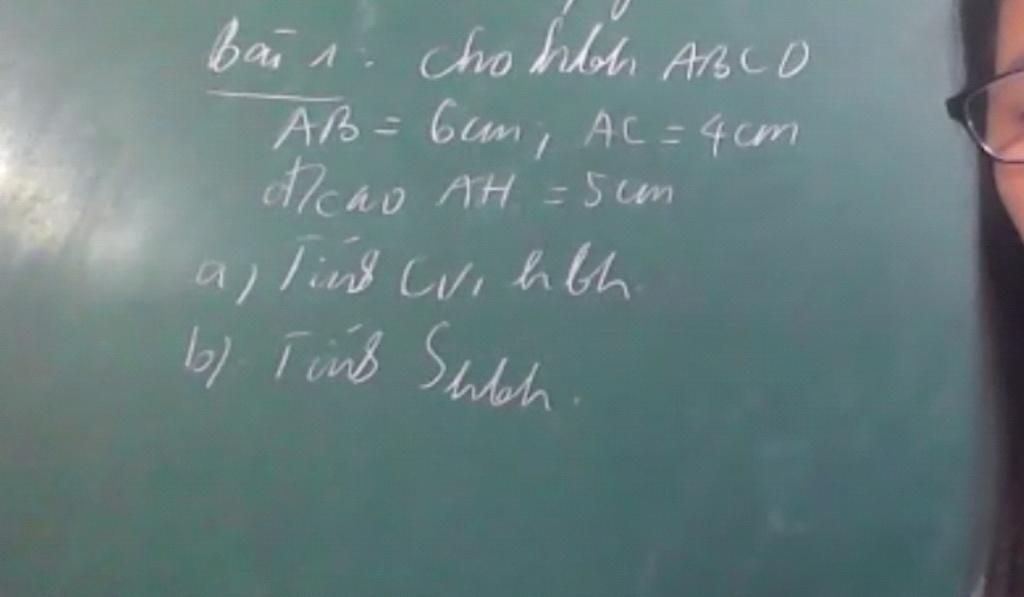 Bài 1: Cho hbh ABCD
AB = 6cm, AC = 4cm
đ/cao AH = 5cm
a) Tính CV, hbh
b) Tính Shbh.